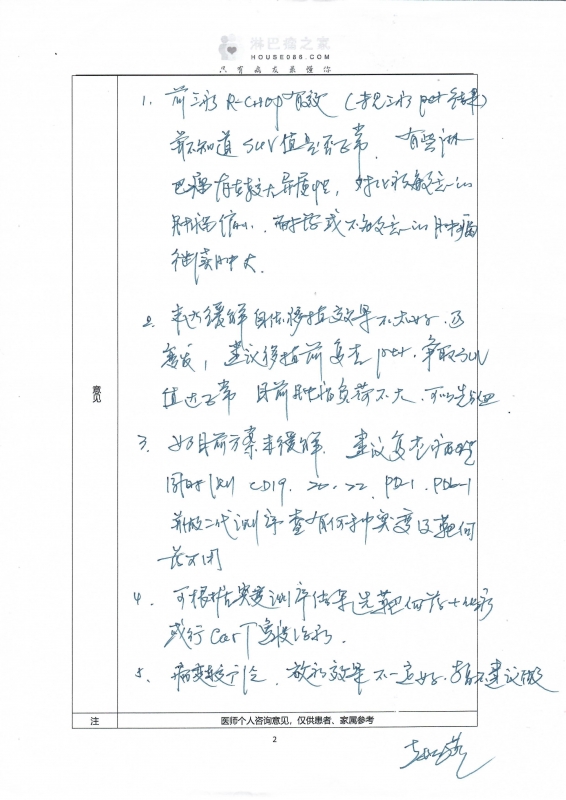 淋巴瘤之家
HOUSE086.COM
只有病友最懂你
1. 前三疗 R-CHOP 有效 (未见三疗 pet 结果)
并不知道 SUV 值是否正常. 有些淋
巴瘤存在较大异质性, 对化疗敏感的
肿瘤缩小. 耐药或不敏感的肿瘤
继续肿大.
2. 未达缓解自体移植效果不太好, 易
复发, 建议移植前复查 pet. 争取 SUV
值达正常 目前肿瘤负荷不大. 可以先
3. 如目前方案未缓解. 建议复查病理
同时测 CD19. 20. 22. PD-1. PDL-1
并做二代测序 查有何种突变及靶向
药可用
4. 可根据突变测序结果选靶向药+化疗
或行 CarT 治疗.
5. 病变较广泛. 放疗效果不一定好. 暂不建议做
意见
注 医师个人咨询意见,仅供患者、家属参考
2